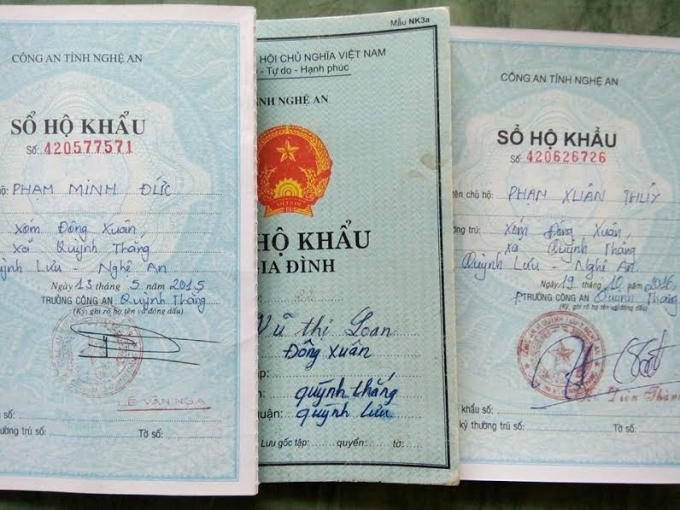 CÔNG AN TỈNH NGHỆ AN
SỔ HỘ KHẨU
Số: 420577571
PHẠM MINH ĐỨC
Xóm Đông Xuân,
xã Quỳnh Thắng
Quỳnh Lưu - Nghệ An
Ngày 13 tháng 5 năm 2015
TRƯỞNG CÔNG AN Quỳnh Thắng
(Ký, ghi rõ họ tên và đóng dấu)
LÊ VĂN NGA
số:
thường trú số: Tờ số:
Mẫu NK3a
HỘI CHỦ NGHĨA VIỆT NAM
- Tự do - Hạnh phúc
NH NGHỆ AN
HỘ KHẨU
GIA ĐÌNH
Vũ Thị Loan
Đông Xuân
quỳnh thắng
quỳnh lưu
Lưu gốc tập: quyển: tờ:
CÔNG AN TỈNH NGHỆ AN
SỔ HỘ KHẨU
Số: 420626726
tên chủ hộ: PHAN XUÂN THỦY
trú: Xóm Đông Xuân,
xã Quỳnh Thắng
Quỳnh Lưu - Nghệ An
Ngày 19 tháng 10 năm 2016
TRƯỞNG CÔNG AN Quỳnh Thắng
(Ký, ghi rõ họ tên và đóng dấu)
khẩu số:
ký thường trú số: Tờ số: